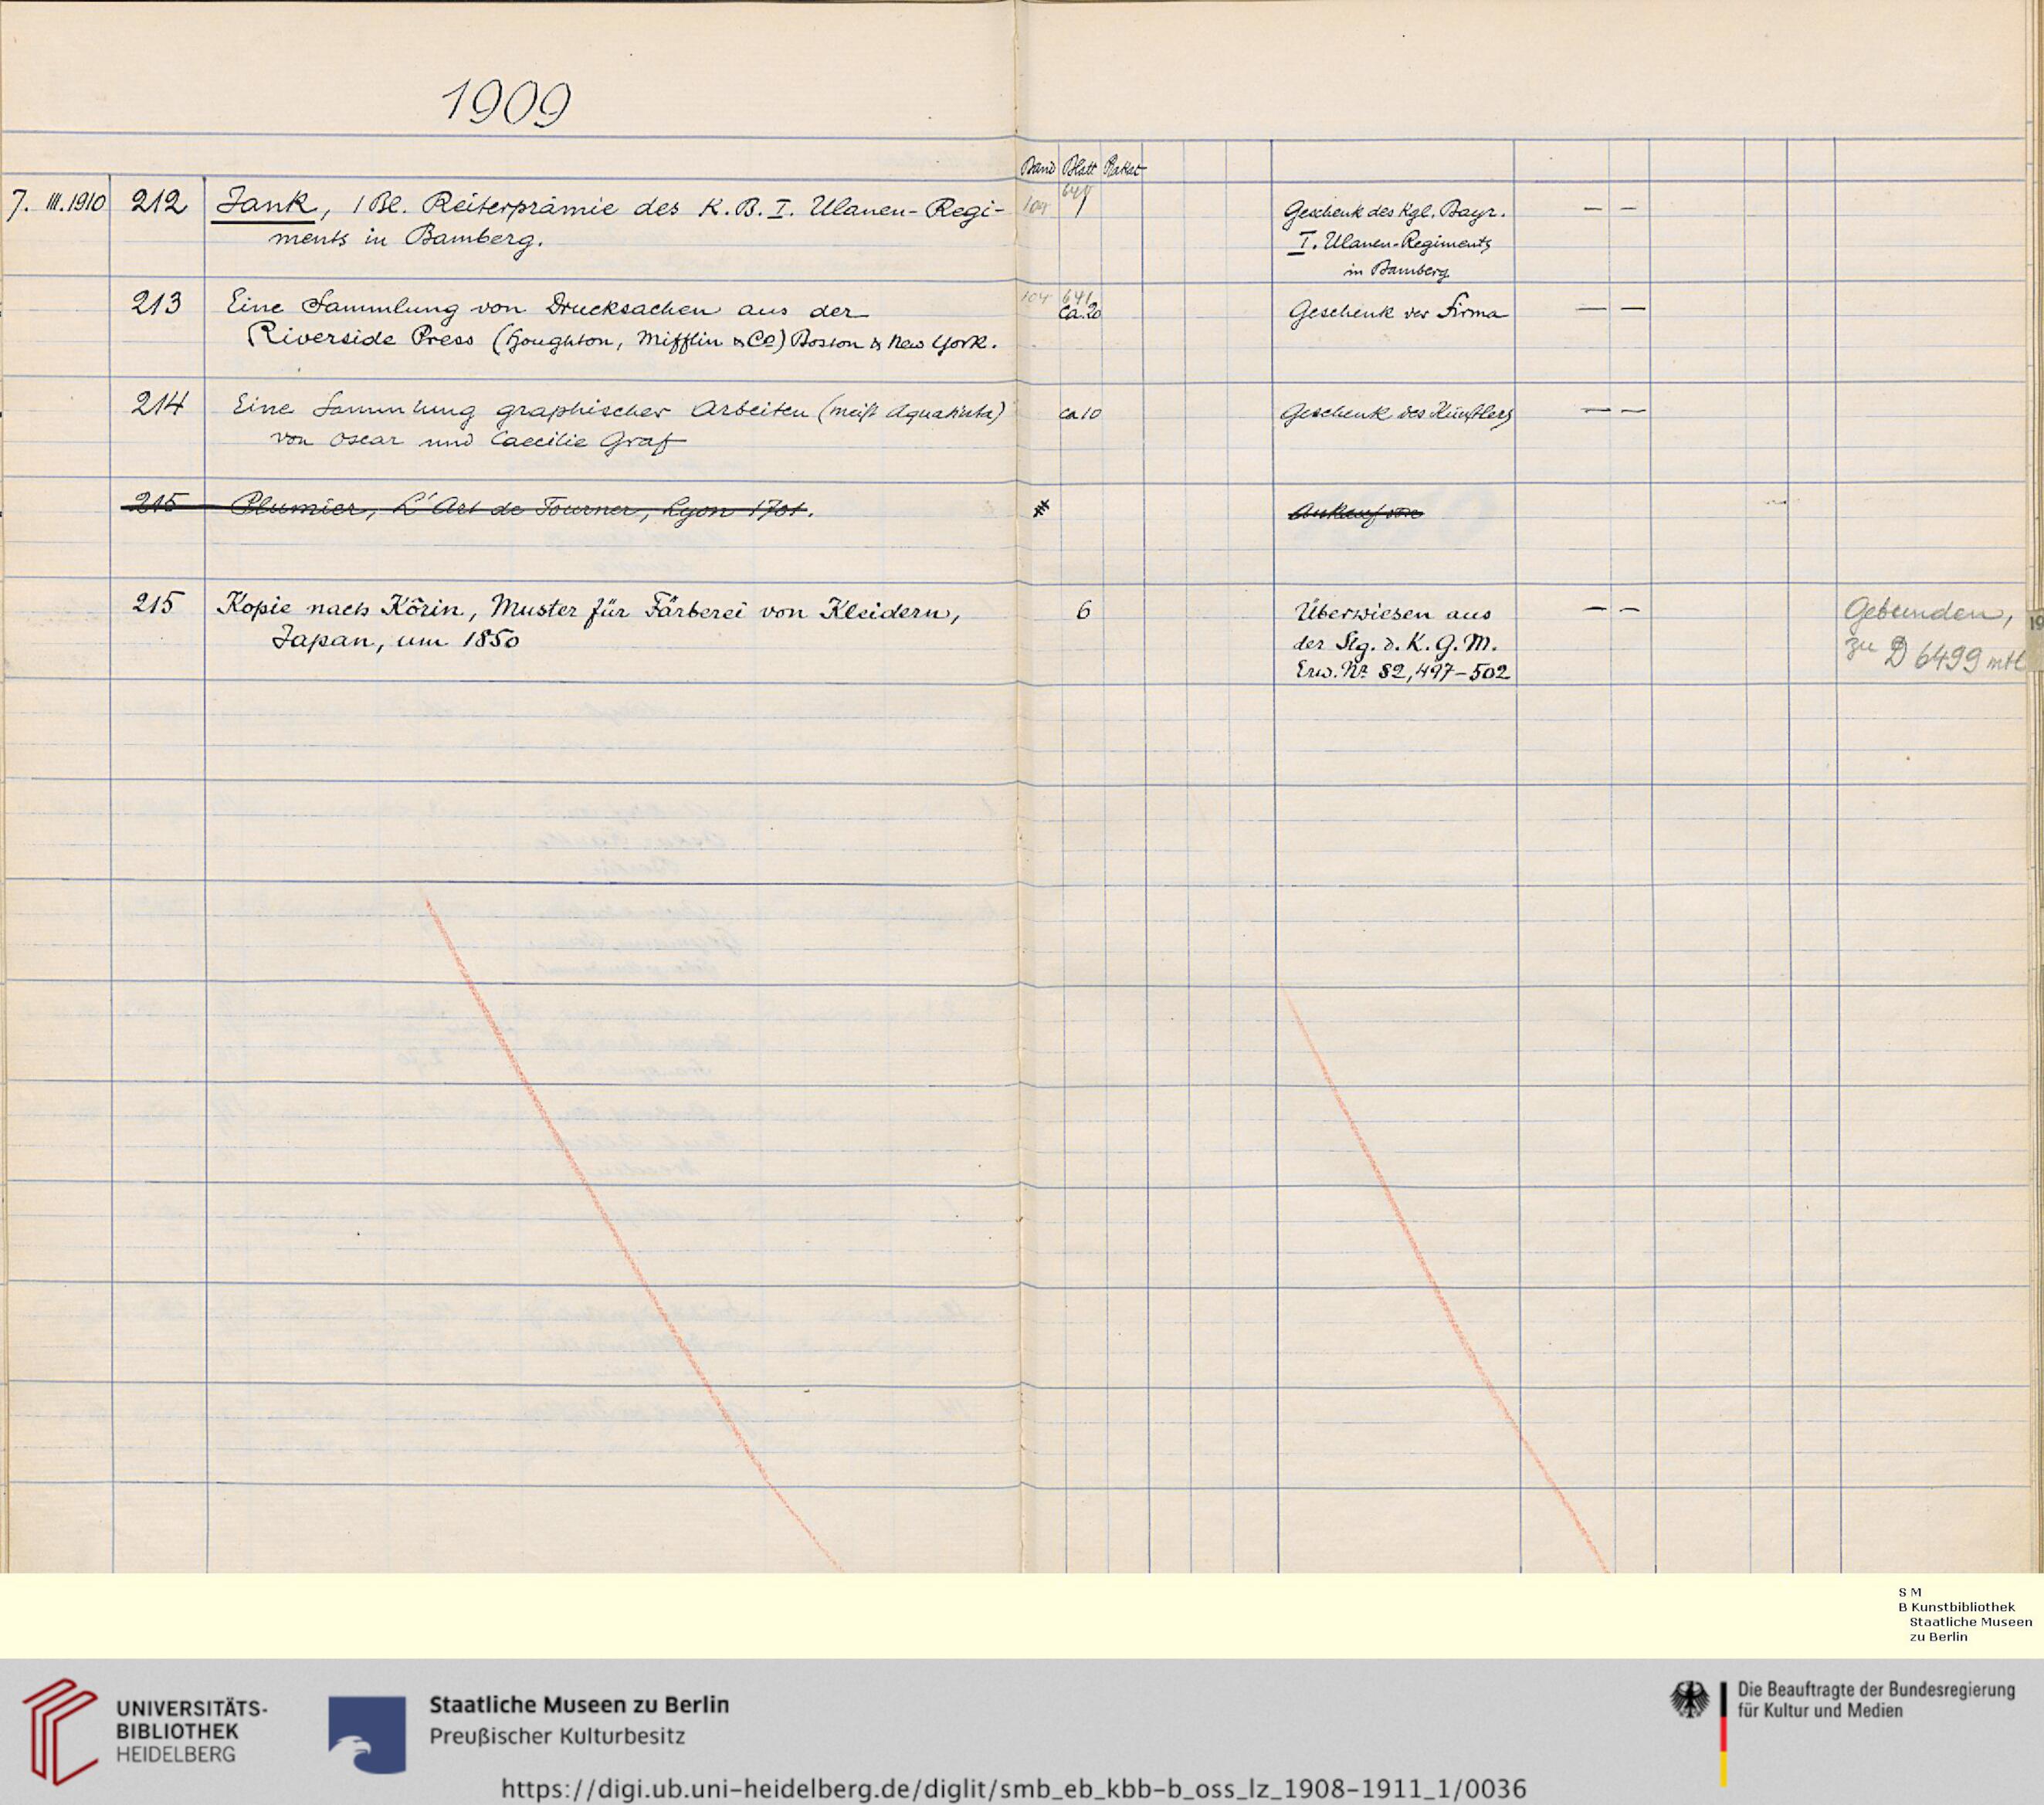 1909
Band Blatt Paket
7. III. 1910 212 Jank, 1 Bl. Reiterprämie des K. B. I. Ulanen-Regi-
ments in Bamberg.
104 641
1
Geschenk des Kgl. Bayr. — —
I. Ulanen-Regiments
in Bamberg
213 Eine Sammlung von Drucksachen aus der
Riverside Press (Houghton, Mifflin & Co) Boston & New York.
104 641
ca. 20
Geschenk der Firma — —
214 Eine Sammlung graphischer Arbeiten (meist Aquatinta)
von Oscar und Caecilie Graf
ca 10
Geschenk des Künstlers — —
215 Plumier, L'Art de Tourner, Lyon 1701.
Ankauf von
215 Kopie nach Kôrin, Muster für Färberei von Kleidern,
Japan, um 1850
6
Überwiesen aus — —
der Slg. d. K. G. M.
Erw. Nr. 82,497-502
Gebunden,
zu D 6499 mtl
19
S M
B Kunstbibliothek
Staatliche Museen
zu Berlin
UNIVERSITÄTS-
BIBLIOTHEK
HEIDELBERG
Staatliche Museen zu Berlin
Preußischer Kulturbesitz
Die Beauftragte der Bundesregierung
für Kultur und Medien
https://digi.ub.uni-heidelberg.de/diglit/smb_eb_kbb-b_oss_lz_1908-1911_1/0036